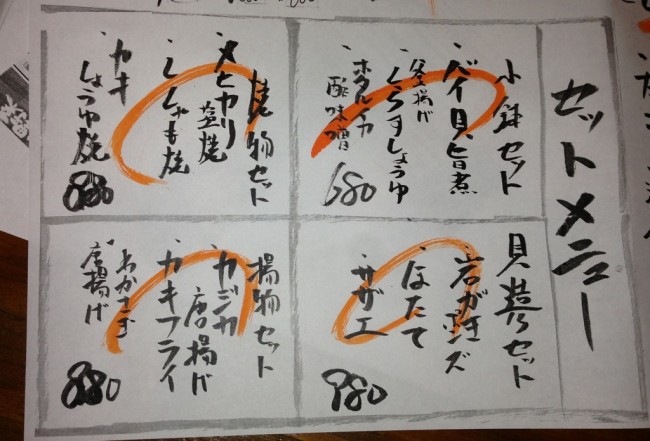 セットメニュー
小鉢セット
・バイ貝旨煮
・釜揚げ
しらすしょうゆ
・ホタルイカ
酢味噌
680
焼物セット
・メヒカリ
塩焼
・ししゃも焼
・カキ
しょうゆ焼
880
貝尽くセット
・岩がきポン酢
・ほたて
・サザエ
980
揚物セット
・カジカ
唐揚げ
・カキフライ
・わかさぎ
唐揚げ
880